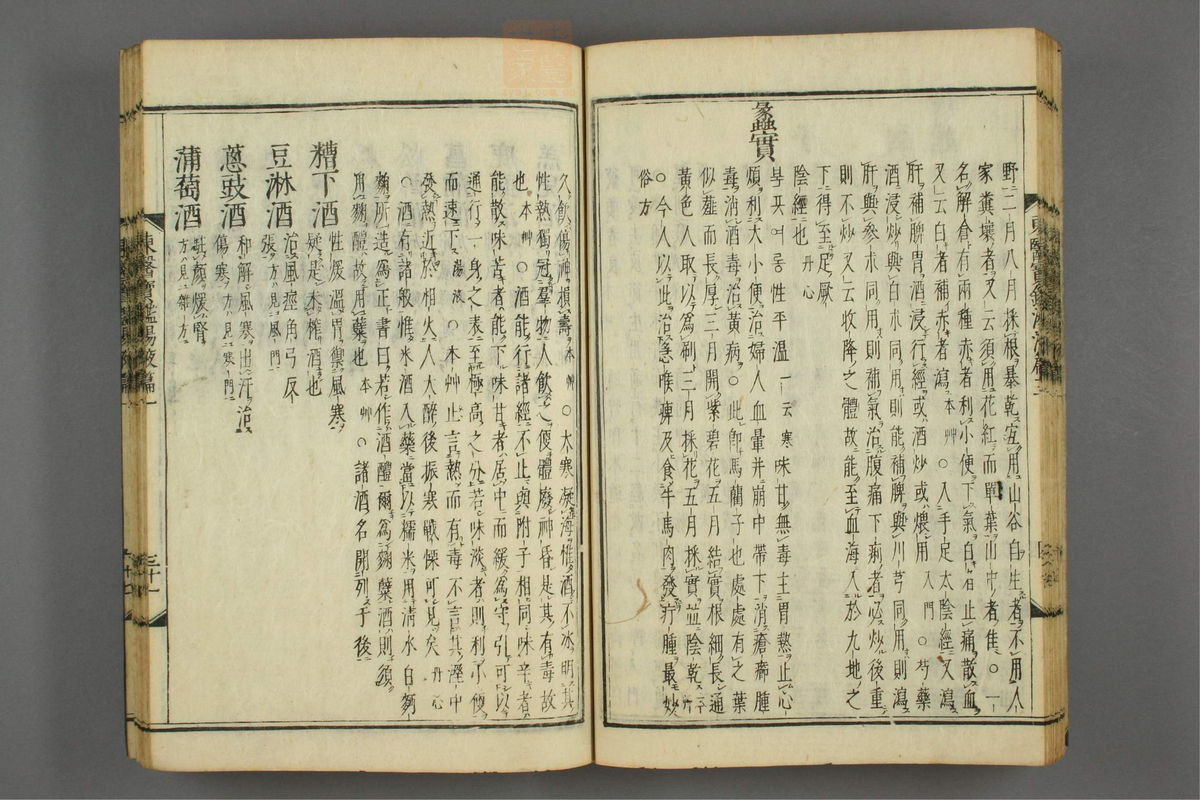 野二月八月採根暴乾宜用山谷自生者不用人
家糞壤者又云須用花紅而單葉山中者佳○一
名解倉有兩種赤者利小便下氣白者止痛散血
又云白者補赤者瀉本艸○入手足太陰經又瀉
肝補脾胃酒浸行經或酒炒或煨用入門○芍藥
酒浸炒與白朮同用則能補脾與川芎同用則瀉
肝與參朮同用則補氣治腹痛下痢者必炒後重
則不炒又云收降之體故能至血海入於九地之
下得至足厥
陰經也丹心
蠡實
붓곳여름性平溫一云寒味甘無毒主胃熱止心
煩利大小便治婦人血暈并崩中帶下消瘡癤腫
毒消酒毒治黃病○此卽馬藺子也處處有之葉
似薤而長厚三月開紫碧花五月結實根細長通
黃色人取以爲刷三月採花五月採實並陰乾本艸
○今人以此治急喉痺及食牛馬肉發疔腫最妙
俗方
東醫寶鑑湯液篇一
三十一
久飮傷神損壽本艸○大寒凝海惟酒不氷明其
性熱獨冠羣物人飮之便體廢神昏是其有毒故
也本艸○酒能行諸經不止與附子相同味辛者
能散味苦者能下味甘者居中而緩爲導引可以
通行一身之表至極高之分若味淡者則利小便
而速下湯液○本艸止言熱而有毒不言其濕中
發熱近於相火人大醉後振寒戰慄可見矣丹心
○酒有諸般惟米酒入藥當以糯米用淸水白麪
麴所造爲正書曰若作酒醴爾爲麴糵酒則須
用麴醴故用糵也本艸○諸酒名開列于後
糟下酒
性煖溫胃禦風寒
疑是未榨酒也
豆淋酒
治風痙角弓反
張方見風門
蔥豉酒
和解風寒出汗治
傷寒方見寒門
蒲萄酒
駐顏煖腎
方見雜方